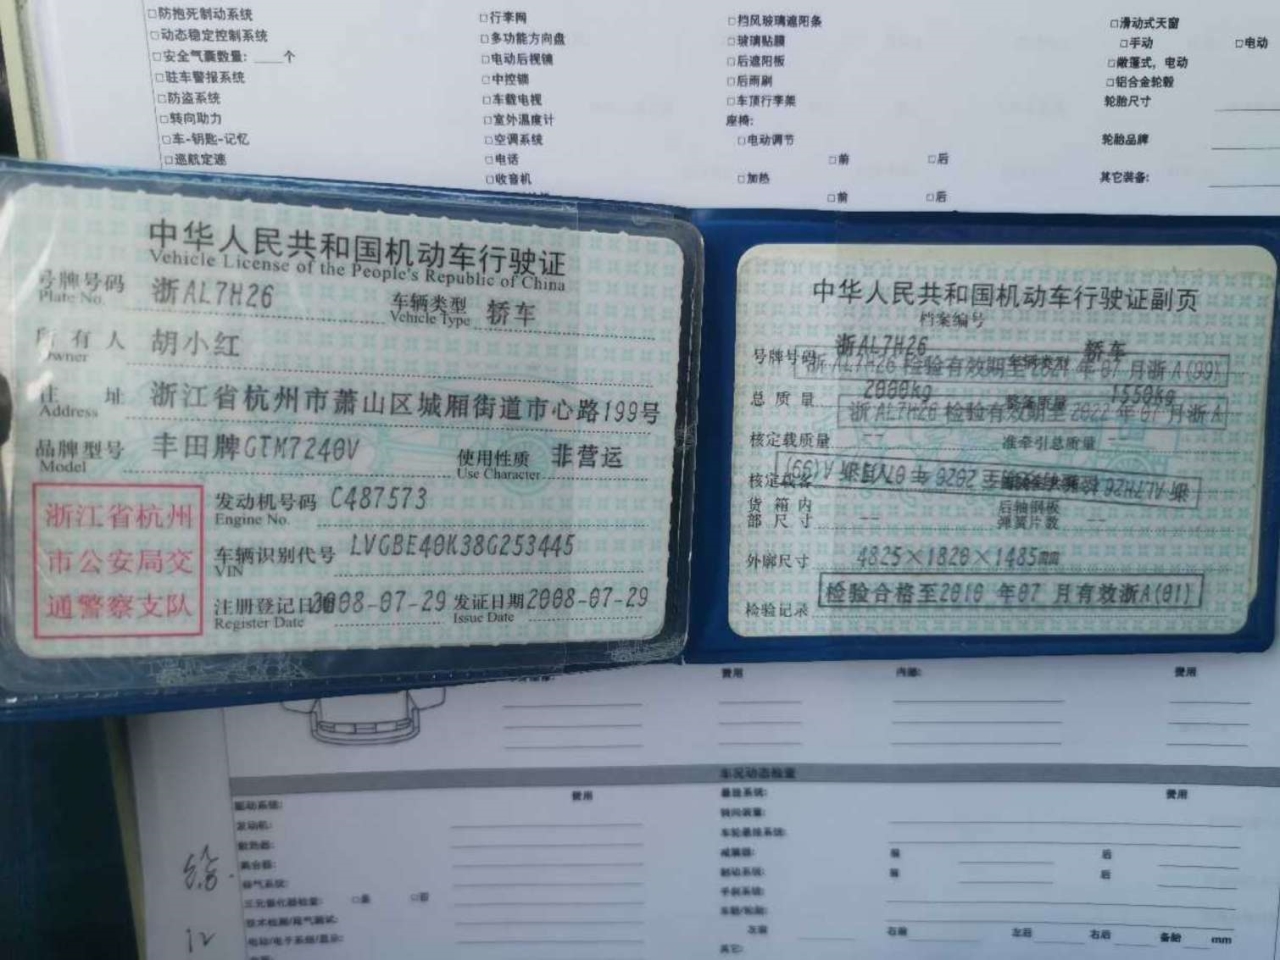 □防抱死制动系统 □行李网 □挡风玻璃遮阳条 □滑动式天窗
□动态稳定控制系统 □多功能方向盘 □玻璃贴膜 □手动 □电动
□安全气囊数量:____个 □电动后视镜 □后遮阳板 □敞篷式,电动
□驻车警报系统 □中控锁 □后雨刷 □铝合金轮毂
□防盗系统 □车载电视 □车顶行李架 轮胎尺寸
□转向助力 □室外温度计 座椅:
□车-钥匙-记忆 □空调系统 □电动调节 轮胎品牌
□巡航定速 □电话 □前 □后
□收音机 □加热 其它装备:
□前 □后
中华人民共和国机动车行驶证
Vehicle License of the People's Republic of China
号牌号码 浙AL7H26 车辆类型 轿车
Plate No. Vehicle Type
所有人 胡小红
Owner
住址 浙江省杭州市萧山区城厢街道市心路199号
Address
品牌型号 丰田牌GTM7240V 使用性质 非营运
Model Use Character
浙江省杭州
市公安局交
通警察支队
发动机号码 C487573
Engine No.
车辆识别代号 LVGBE40K38G253445
VIN
注册登记日期 2008-07-29 发证日期 2008-07-29
Register Date Issue Date
中华人民共和国机动车行驶证副页
档案编号
号牌号码 浙AL7H26 车辆类型 轿车
浙AL7H26 检验有效期至 年07月浙A(99)
总质量 2000kg 整备质量 1550kg
浙AL7H26 检验有效期至2022年07月浙A
核定载质量 -- 准牵引总质量 --
核定载客
货箱内部尺寸 -- 后轴钢板弹簧片数 --
外廓尺寸 4825×1820×1485mm
检验合格至2010年07月有效浙A(01)
检验记录
费用 内部: 费用
车况动态检查
驱动系统: 费用 悬挂系统: 费用
发动机: 转向装置:
散热器: 车轮悬挂系统:
离合器: 减震器: 前 后
排气系统: 制动系统: 前 后
三元催化器检查: □是 □否 手刹系统:
技术检测/尾气测试: 车胎/轮胎:
电动/电子系统/显示: 左前 右前 左后 右后 备胎 mm
其它:
12